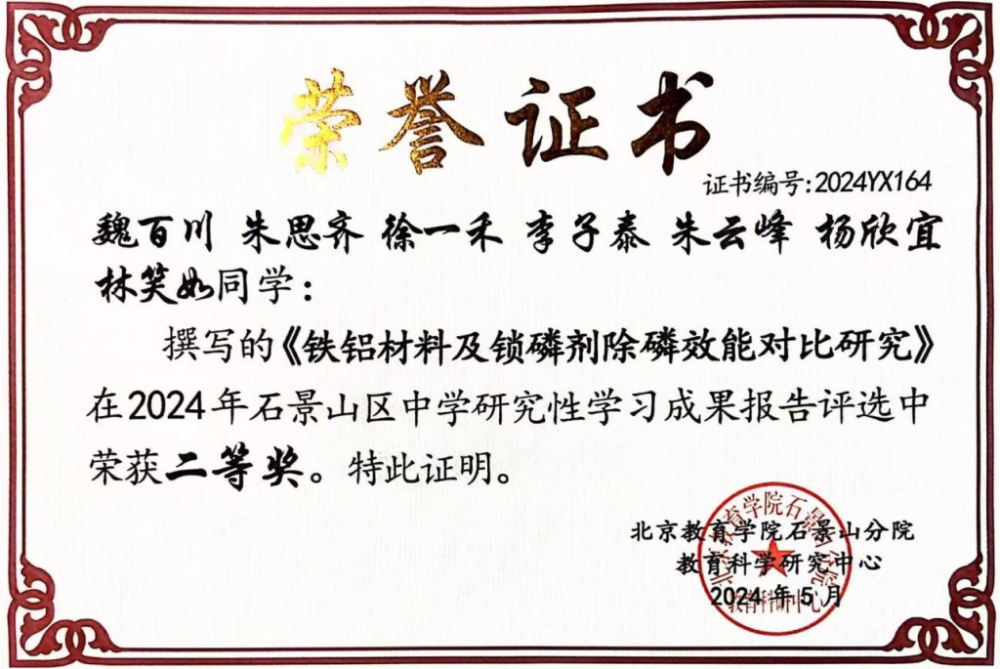 荣誉证书
证书编号:2024YX164
魏百川 朱思齐 徐一禾 李子泰 朱云峰 杨欣宜
林笑如同学：
撰写的《铁铝材料及锁磷剂除磷效能对比研究》
在2024年石景山区中学研究性学习成果报告评选中
荣获二等奖。特此证明。
北京教育学院石景山分院
教育科学研究中心
2024年5月